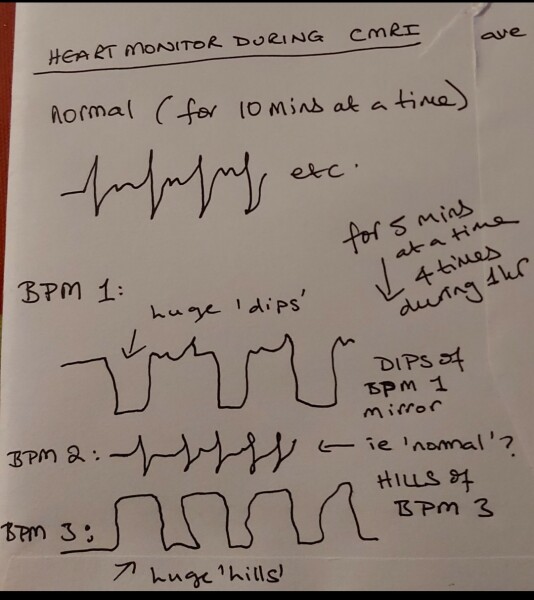 HEART MONITOR DURING CMRI
ave
normal (for 10 mins at a time)
etc.
for 5 mins
at a time
4 times
during 1hr
BPM 1:
huge 'dips'
DIPS of
BPM 1
mirror
BPM 2:
ie 'normal'?
HILLS of
BPM 3
BPM 3:
huge 'hills'